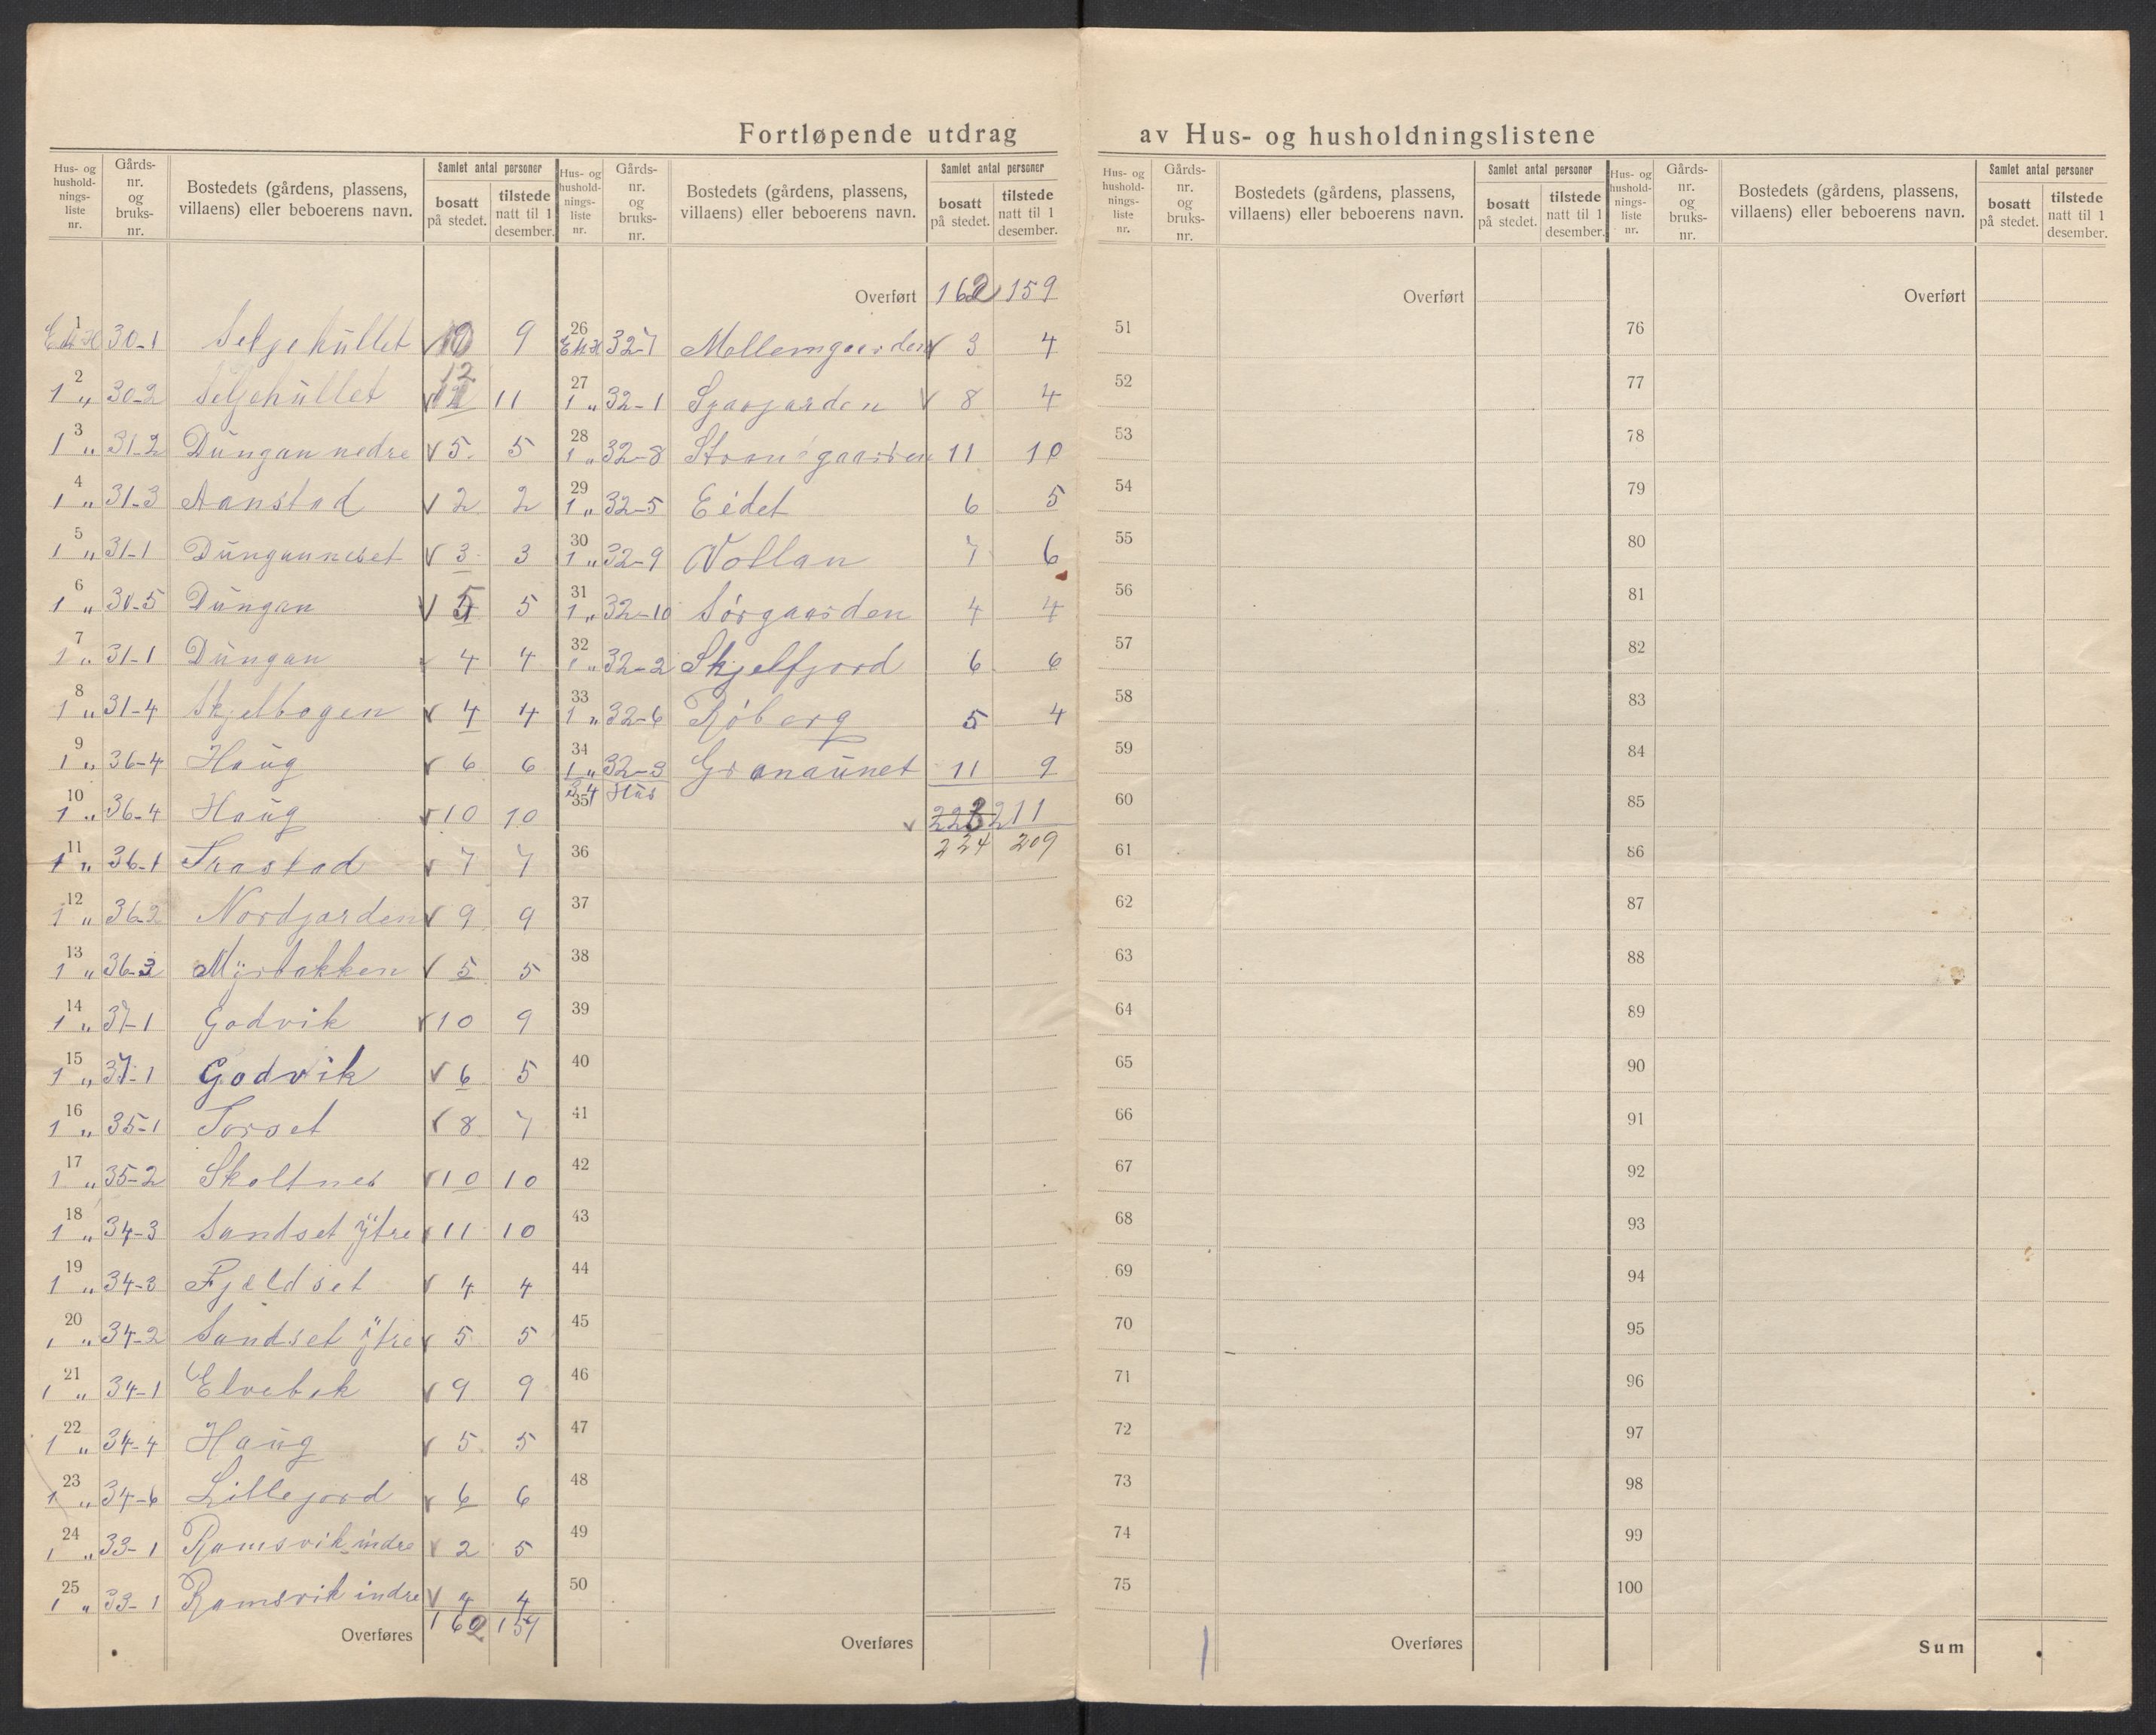 Fortløpende utdrag av Hus- og husholdningslistene
Hus- og hushold-nings-liste nr. | Gårds-nr. og bruks-nr. | Bostedets (gårdens, plassens, villaens) eller beboerens navn. | Samlet antal personer | bosatt på stedet. | tilstede natt til 1 desember.
1 30-1 Seljehullet 10 9
2 1 " 30-2 Seljehullet 12 11
3 1 " 31-2 Dungan nedre 5 5
4 1 " 31-3 Aanstad 2 2
5 1 " 31-1 Dunganneset 3 3
6 1 " 31-5 Dungan 5 5
7 1 " 31-1 Dungan 4 4
8 1 " 31-4 Skjelbogen 4 4
9 1 " 36-4 Haug 6 6
10 1 " 36-4 Haug 10 10
11 1 " 36-1 Trastad 7 7
12 1 " 36-2 Nordgarden 9 9
13 1 " 36-3 Myrbakken 5 5
14 1 " 37-1 Godvik 10 9
15 1 " 37-1 Godvik 6 5
16 1 " 35-1 Torset 8 7
17 1 " 35-2 Skoltnes 10 10
18 1 " 34-3 Sandset ytre 11 10
19 1 " 34-3 Fjeldset 4 4
20 1 " 34-2 Sandset ytre 5 5
21 1 " 34-1 Elvebak 9 9
22 1 " 34-4 Haug 5 5
23 1 " 34-6 Lillejord 6 6
24 1 " 33-1 Ramsvik indre 2 5
25 1 " 33-1 Ramsvik indre 4 4
Overføres 162 157
Hus- og hushold-nings-liste nr. | Gårds-nr. og bruks-nr. | Bostedets (gårdens, plassens, villaens) eller beboerens navn. | Samlet antal personer | bosatt på stedet. | tilstede natt til 1 desember.
Overført 162 159
26 32-7 Mellemgaarden 3 4
27 1 " 32-1 8 4
28 1 " 32-8 11 10
29 1 " 32-5 Eidet 6 5
30 1 " 32-9 Vollan 7 6
31 1 " 32-10 Sørgaarden 4 4
32 1 " 32-2 Skjelfjord 6 6
33 1 " 32-6 Røberg 5 4
34 1 " 32-3 Granaunet 11 9
34 Hus
35 223 211
36 224 209
37
38
39
40
41
42
43
44
45
46
47
48
49
50
Overføres
Hus- og hushold-nings-liste nr. | Gårds-nr. og bruks-nr. | Bostedets (gårdens, plassens, villaens) eller beboerens navn. | Samlet antal personer | bosatt på stedet. | tilstede natt til 1 desember.
Overført
51
52
53
54
55
56
57
58
59
60
61
62
63
64
65
66
67
68
69
70
71
72
73
74
75
Overføres
Hus- og hushold-nings-liste nr. | Gårds-nr. og bruks-nr. | Bostedets (gårdens, plassens, villaens) eller beboerens navn. | Samlet antal personer | bosatt på stedet. | tilstede natt til 1 desember.
Overført
76
77
78
79
80
81
82
83
84
85
86
87
88
89
90
91
92
93
94
95
96
97
98
99
100
Sum